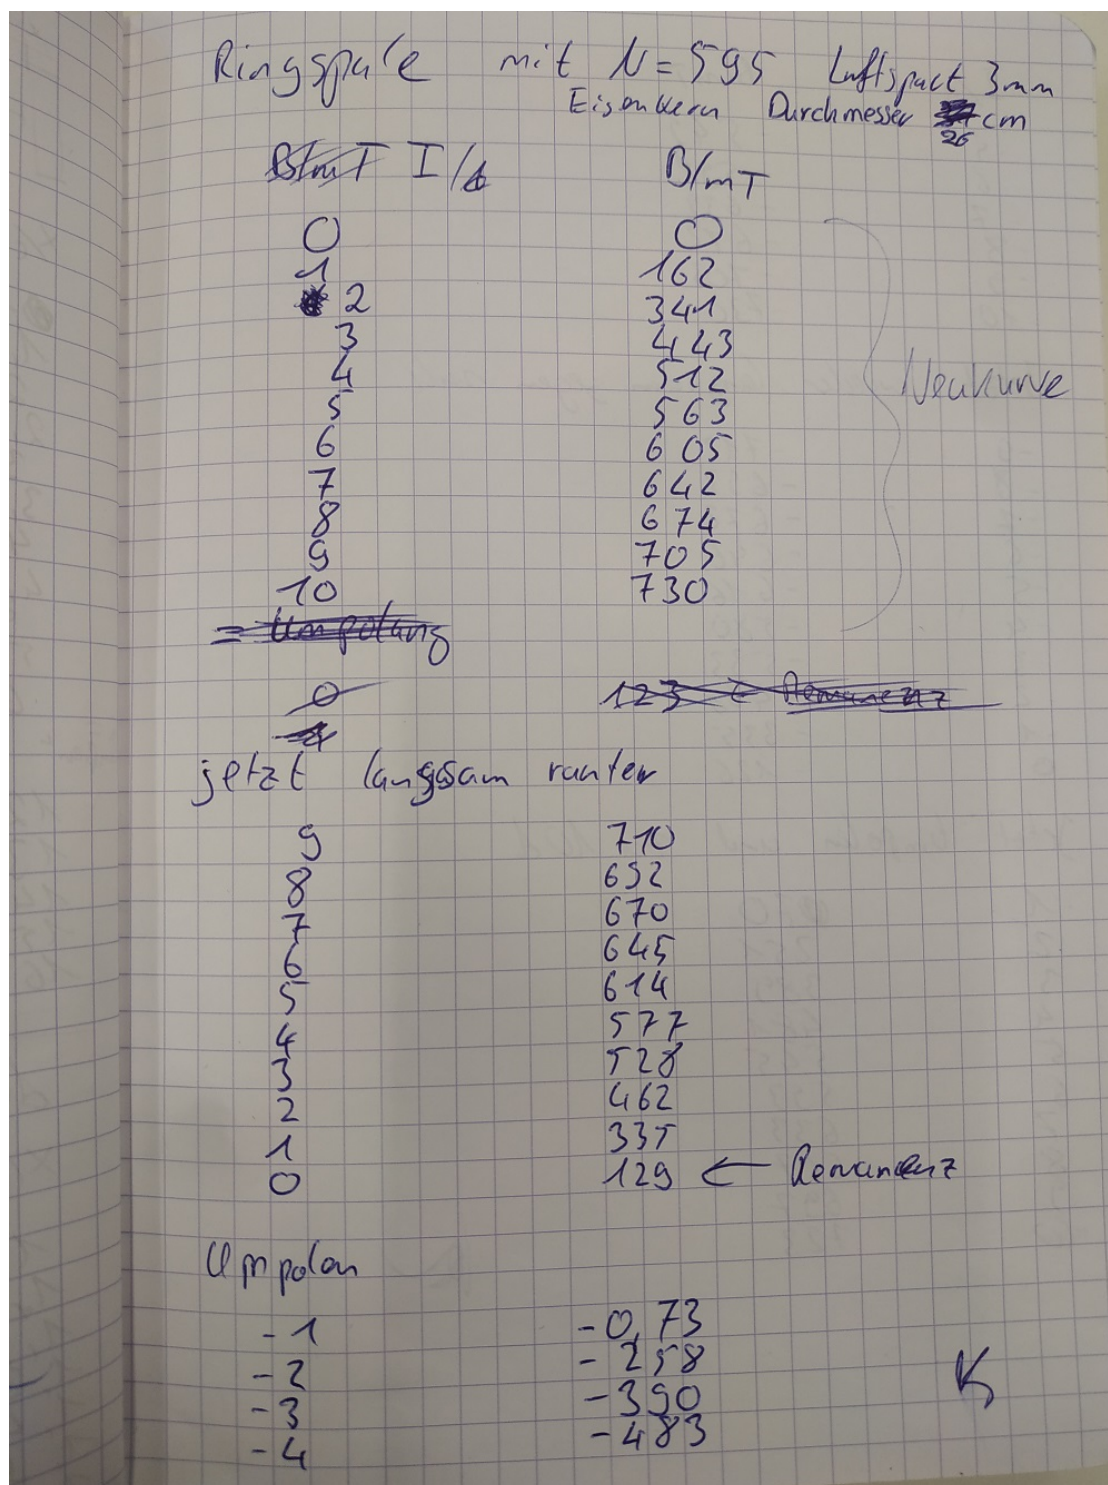 Ringspule mit N=595 Luftspact 3mm
Eisenkern Durchmesser cm
26
B/mT I/A B/mT
0 0
1 162
2 341
3 443
4 512
5 563
6 605
7 642
8 674
9 705
10 730
Neukurve
= Umpolung
0 123 ← Remanenz
jetzt langsam runter
9 710
8 692
7 670
6 645
5 614
4 577
3 528
2 462
1 335
0 129 ← Remanenz
Umpolen
-1 -0,73
-2 -258
-3 -390
-4 -483